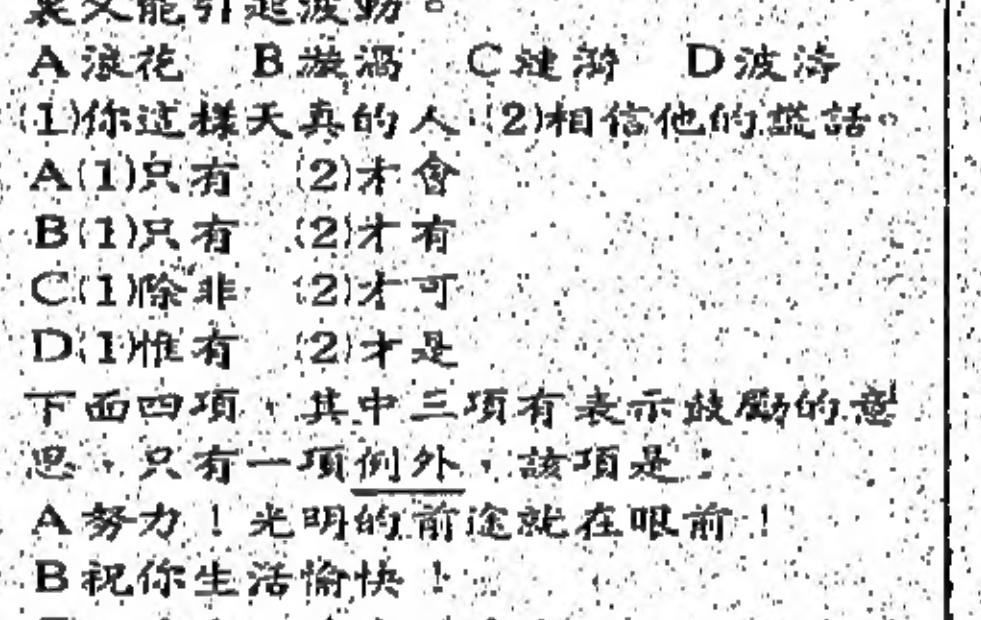 裏又能引起波動。
A浪花 B漩渦 C漣漪 D波濤
(1)你這樣天真的人,(2)相信他的謊話。
A(1)只有 (2)才會
B(1)只有 (2)才有
C(1)除非 (2)才可
D(1)惟有 (2)才是
下面四項,其中三項有表示鼓勵的意
思,只有一項例外,該項是:
A努力!光明的前途就在眼前!
B祝你生活愉快!